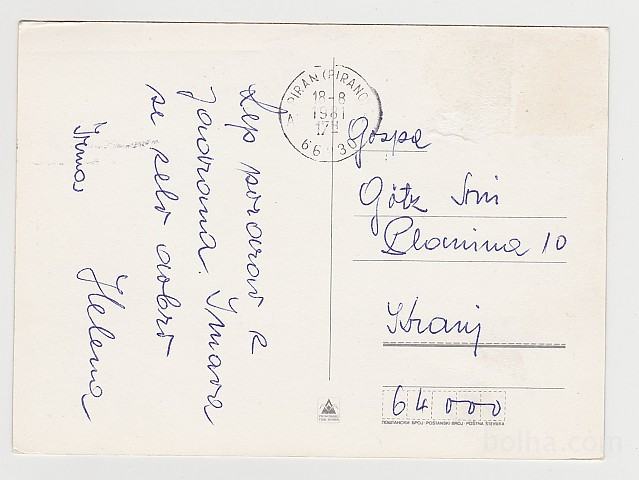 Lep pozdrav z
Jadrana. Imava
se zelo dobro
Irma Helena
PIRAN (PIRANO)
18-8
1981
17H
66330
Gospa
Götz Sini
Planina 10
Kranj
64000
ПОШТАНСКИ БРОЈ · POŠTANSKI BROJ · POŠTNA ŠTEVILKA
bolha.com